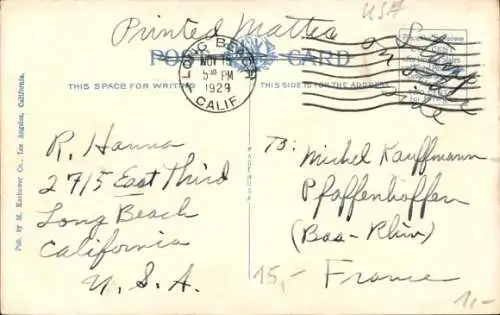 Printed Matter
USA
POST CARD
LONG BEACH
NOV 1
5 30 PM
1929
CALIF.
Stamp
on
other
side
THIS SPACE FOR WRITING
THIS SIDE IS FOR THE ADDRESS
Pub. by M. Kashower Co., Los Angeles, California.
MADE IN USA
R. Hanna
2715 East Third
Long Beach
California
U. S. A.
To:
Michel Kauffmann
Pfaffenhoffen
(Bas-Rhin)
France
15,-
1,-